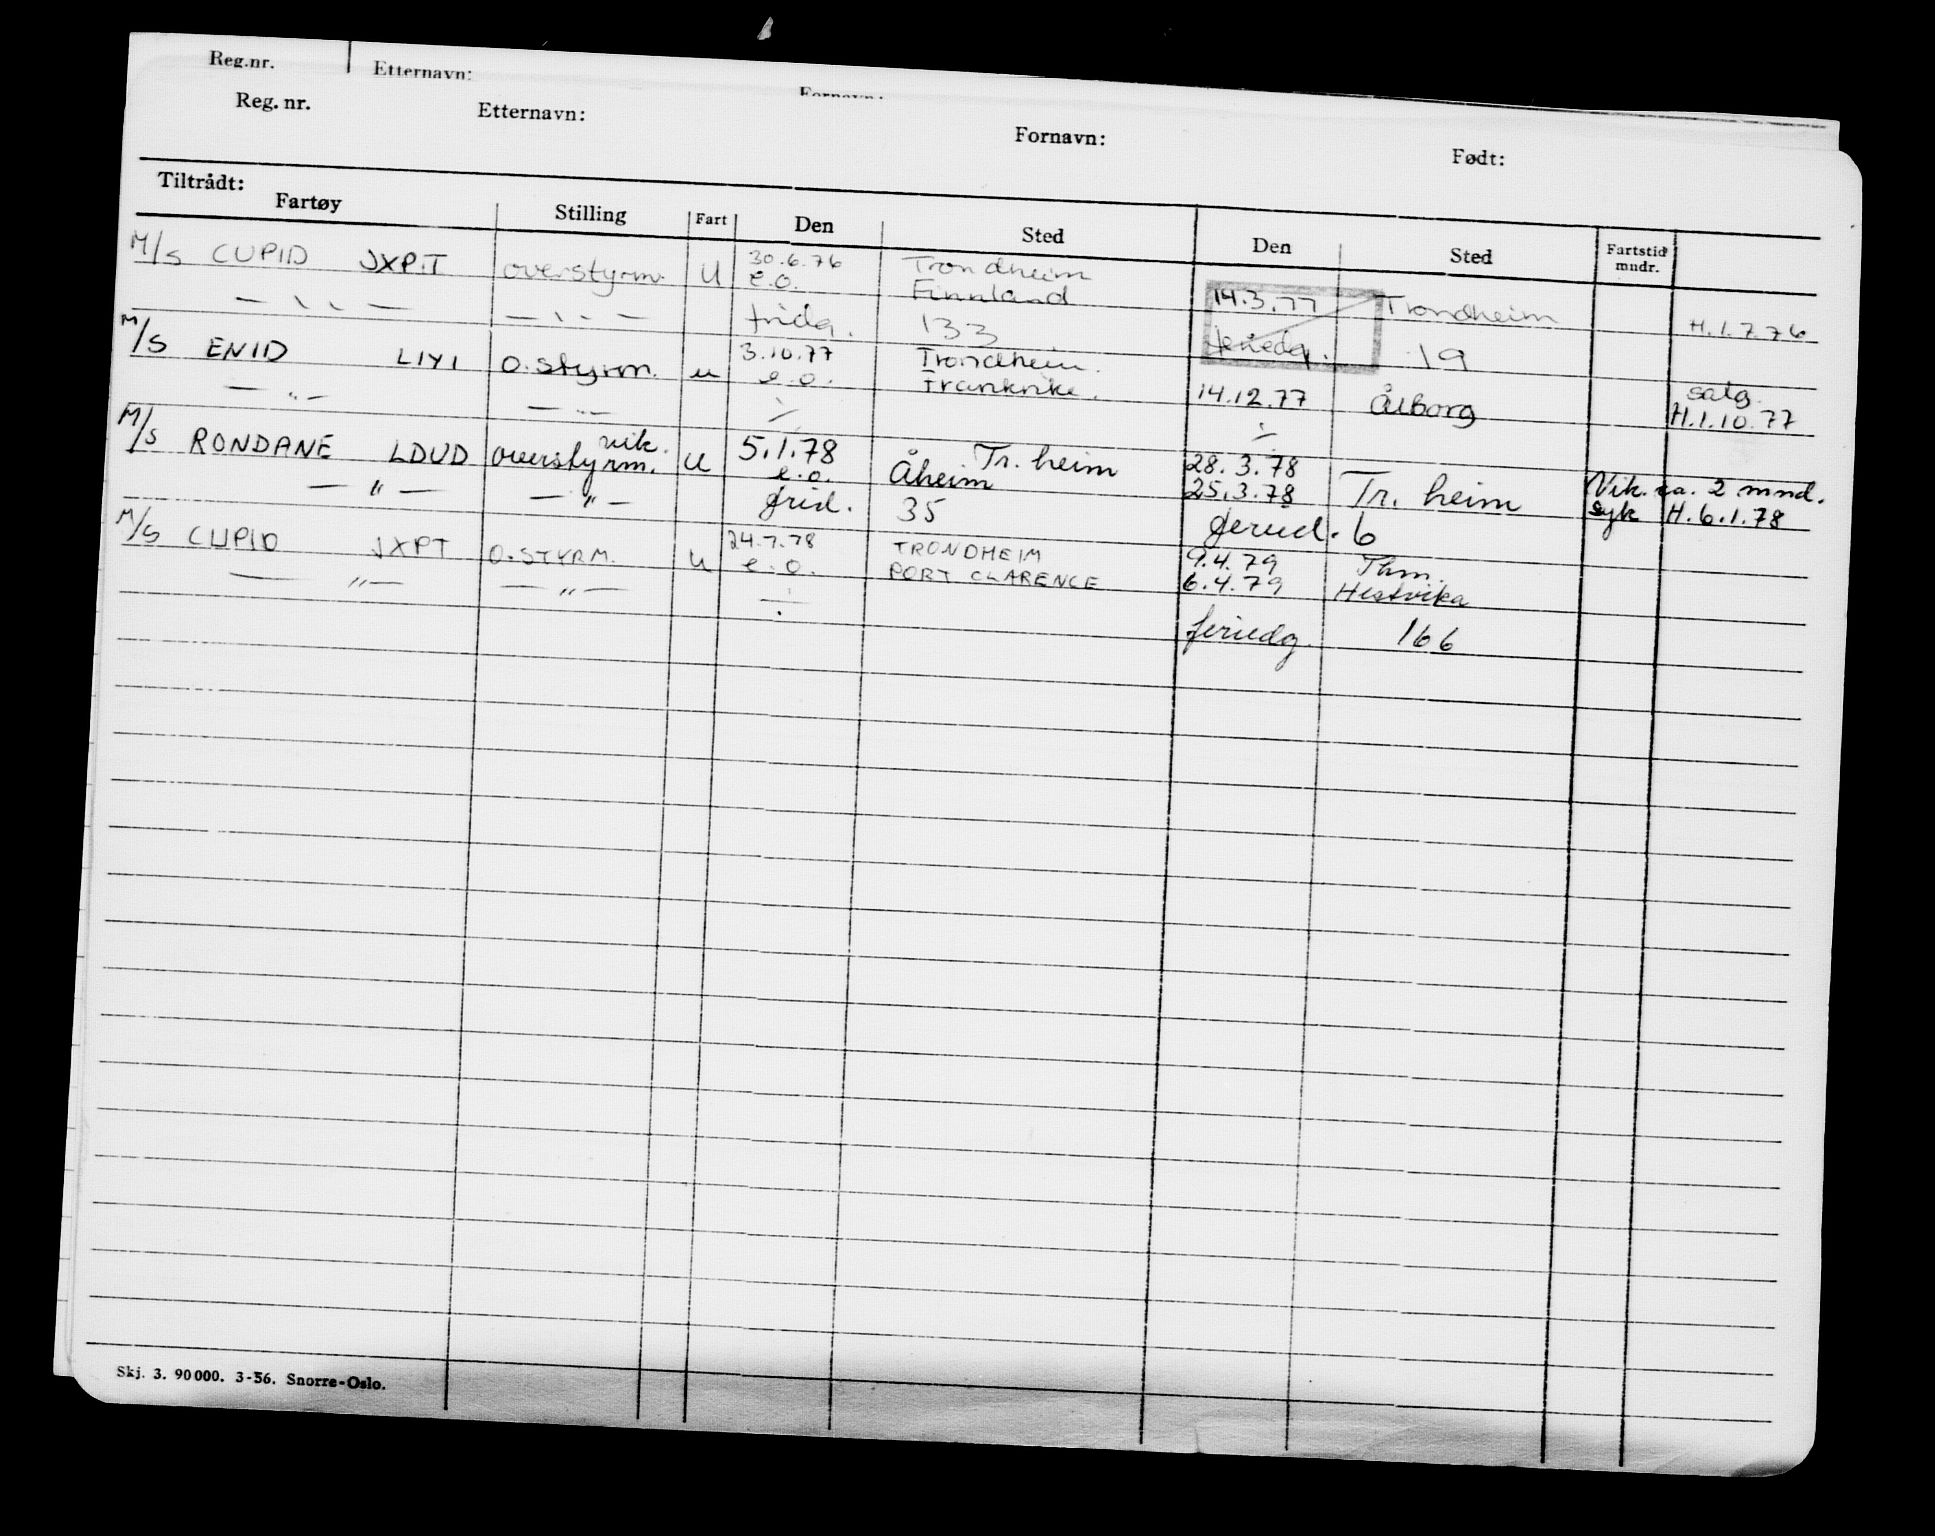 Reg.nr. Etternavn: Fornavn:
Reg. nr. Etternavn: Fornavn: Født:
Tiltrådt:
Fartøy Stilling Fart Den Sted Den Sted Fartstid mndr.
M/S CUPID JXPT overstyrm. U 30.6.76 Trondheim
e.o. Finnland 14.3.77 Trondheim H.1.7.76
— " — — " — frida. 133 feriedg. 19
M/S ENID LIYI O.styrm. u 3.10.77 Trondheim.
e.o. Frankrike. 14.12.77 Ålborg salg. H.1.10.77
— " — — " — ÷ ÷
M/S RONDANE LDUD vik. overstyrm. U 5.1.78 Tr. heim 28.3.78
e.o. Åheim 25.3.78 Tr. heim Vik. ca. 2 mnd.
syk H.6.1.78
— " — — " — frid. 35 feried. 6
M/S CUPID JXPT O.STYRM. u 24.7.78 TRONDHEIM 9.4.79 Thm.
e.o. PORT CLARENCE 6.4.79 Hestvika
— " — — " — ÷
feriedg. 166
Skj. 3. 90000. 3-56. Snorre-Oslo.